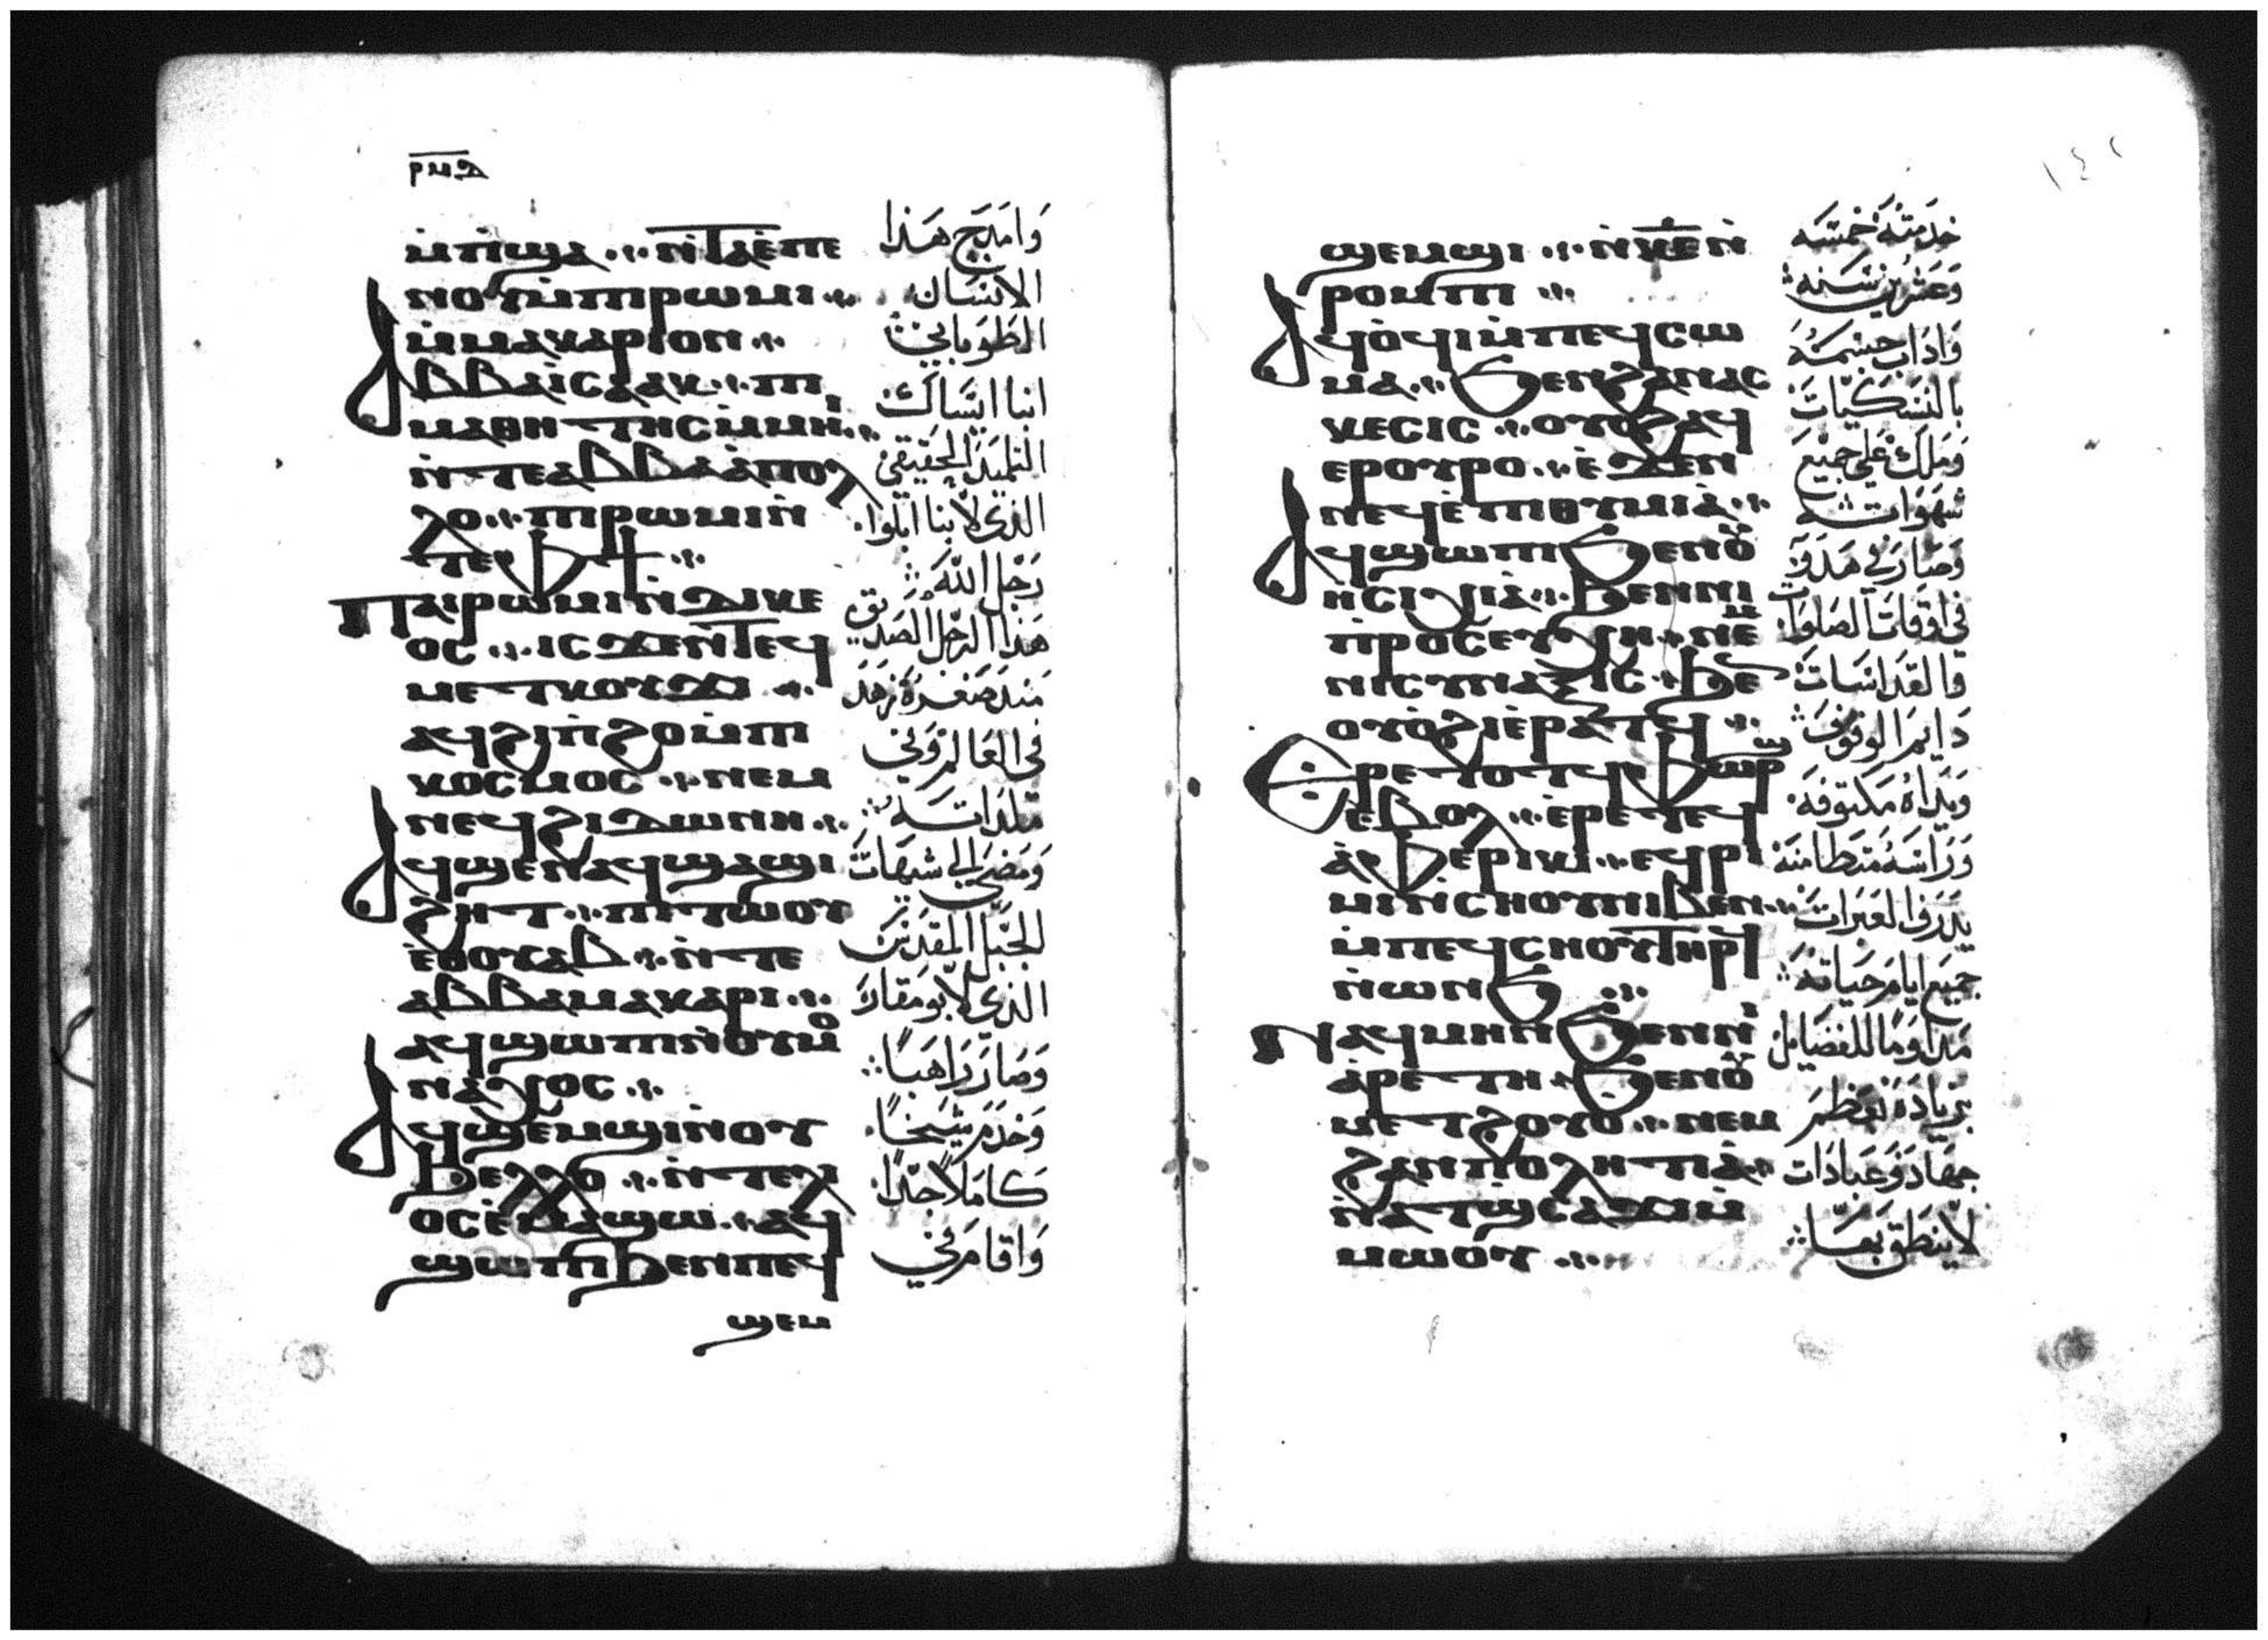 ⲣⲙⲁ
ⲙ̀ⲡ̀ϣⲁ ⲛ̀ⲧⲁⲉ̀ⲡⲉ
ⲛⲟⲩⲙ̀ⲡⲓⲣⲱⲙⲓ
ⲙ̀ⲙⲁⲕⲁⲣⲓⲟⲛ
Ⲁⲃⲃⲁ ⲓⲥⲁⲁⲕ ⲡⲓ
ⲙⲁⲑⲏⲧⲏⲥ ⲙ̀ⲙⲏⲓ
ⲛ̀ⲧⲉ ⲁⲃⲃⲁ ⲁ̀ⲡⲟⲗ
ⲗⲟ ⲡⲓⲣⲱⲙⲓ ⲛ̀
ⲧⲉ ⲫϯ
Ⲡⲁⲓⲣⲱⲙⲓ ⲛ̀ⲇⲓⲕⲉ
ⲟⲥ ⲓⲥϫⲉⲛ ⲧⲉϥ
ⲙⲉⲧⲕⲟⲩϫⲓ
ⲁϥϩⲓⲡ̀ϩⲟ ⲙ̀ⲡⲓ
ⲕⲟⲥⲙⲟⲥ ⲛⲉⲙ
ⲛⲉϥϩⲓⲇⲱⲛⲏ
Ⲁϥϣⲉⲛⲁϥ ϣⲁ ϣⲓ
ϩⲏⲧ ⲡⲓⲧⲱⲟⲩ
ⲉ̀ⲑⲟⲩⲁⲃ ⲛ̀ⲧⲉ
ⲁⲃⲃⲁ ⲙⲁⲕⲁⲣⲓ
ⲁϥϣⲱⲡⲓ ⲛ̀ⲟⲩⲙⲟ
ⲛⲁⲭⲟⲥ
Ⲁϥϣⲉⲙϣⲓ ⲛ̀ⲟⲩ
ϧⲉⲗⲗⲟ ⲛ̀ⲧⲉⲗⲓ
ⲟⲥ ⲉ̀ⲙⲁϣⲱ ⲁϥ
ϣⲱⲡⲓ ϧⲉⲛ ⲡⲉϥ
ϣⲉⲙ
وَامدَج هَذا
الانسَان
الطوبَاني
انبا ايسَاك
التلميذ الحَقيقي
الذي لابنا ابلوا
رَجل الله
هَذا الرجل الصَديق
مَند صَغره زهَد
في العَالم وَفي
تلذاتَه
وَمَضي الي شيهَات
للجبَل المقدَس
الذي لابو مقار
وَصَار رَاهبًا
وَخدَم شيخًا
كاملًا جدًا
وَاقامَ في
ϣⲉⲙϣⲓ ⲛ̀ⲕⲉ ⲛ̀
ⲣⲟⲙⲡⲓ
Ⲁϥⲟ̀ϥⲓ ⲙ̀ⲡⲉϥⲥⲱ
ⲙⲁ ϧⲉⲛ ϩⲁⲛⲁⲥ
ⲕⲉⲥⲓⲥ ⲟⲩⲟϩ ⲁϥ
ⲉⲣⲟⲩⲣⲟ ⲉ̀ϫⲉⲛ
ⲛⲉϥⲉ̀ⲡⲓⲑⲩⲙⲓⲁ̀
Ⲁϥϣⲱⲡⲓ ϧⲉⲛ ⲟⲩ
ⲏⲥⲩⲭⲓⲁ̀ ϧⲉⲛ ⲛⲓ
ⲡ̀ⲣⲟⲥⲉⲩⲭⲏ ⲛⲉⲙ
ⲛⲓⲥⲩⲛⲁⲝⲓⲥ ϧⲉ
ⲟⲩⲟ̀ϩⲓ ⲉ̀ⲣⲁⲧϥ
Ⲉⲣⲉ ⲧⲟⲧϥ ⲫⲱⲣϣ
ⲉⲃⲟⲗ ⲉ̀ⲣⲉ ⲧⲉϥ
ⲁ̀ⲫⲉ ⲣⲓⲕⲓ ⲉϥⲣⲓ
ⲙⲓ ⲛ̀ⲥⲛⲟⲩ ⲛⲓⲃⲉⲛ
ⲙ̀ⲡⲉϥⲥⲛⲟⲩ ⲧⲏⲣϥ
ⲛ̀ⲱⲛϧ
Ⲛⲁϥⲙⲏⲛ ϧⲉⲛ ⲛⲓ
ⲁ̀ⲣⲉⲧⲏ ϧⲉⲛ ⲟⲩ
ⲙⲉⲧϩⲟⲩⲟ ⲛⲉⲙ
ϩⲁⲛⲡⲟⲗⲏⲧⲓⲁ̀
ⲛ̀ⲁⲧⲥⲁϫⲓ ⲙ̀
ⲙⲱⲟⲩ
خدمتهُ خمسَه
وَعشرين سَنه
وَاداب جسمَهُ
بالنسَكيَات
وَملك عَلي جميع
شهَواته
وَصَار في هَدوَ
في اوقات الصَلوَات
والقدَاسَات
دَايم الوقوف
وَيدَاه مَكتوفه
وَرَاسَهُ متطَامنَه
يَدرف العَبرات
جميَع ايام حَيَاته
مَداوَمًا للفضايل
بزيادَة تعَظم
جهَاد وَعَبادَات
لا ينطَق بهَا